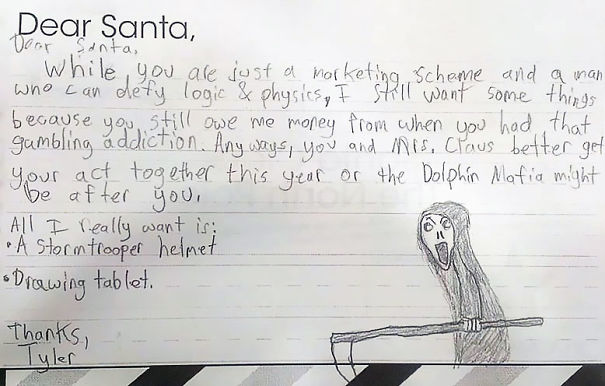 Dear Santa,
Dear Santa,
While you are just a marketing scheme and a man
who can defy logic & physics, I still want some things
because you still owe me money from when you had that
gambling addiction. Any ways, you and Mrs. Claus better get
your act together this year or the Dolphin Mafia might
be after you.
All I really want is:
• A Stormtrooper helmet
• Drawing tablet.
Thanks,
Tyler